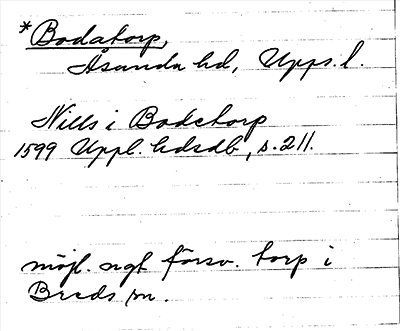 *Bodatorp,
Åsunda hd, Upps. l.
Nills i Bodetorp
1599 Uppl. hdsdb, s. 211.
möjl. ngt försv. torp i
Breds sn.